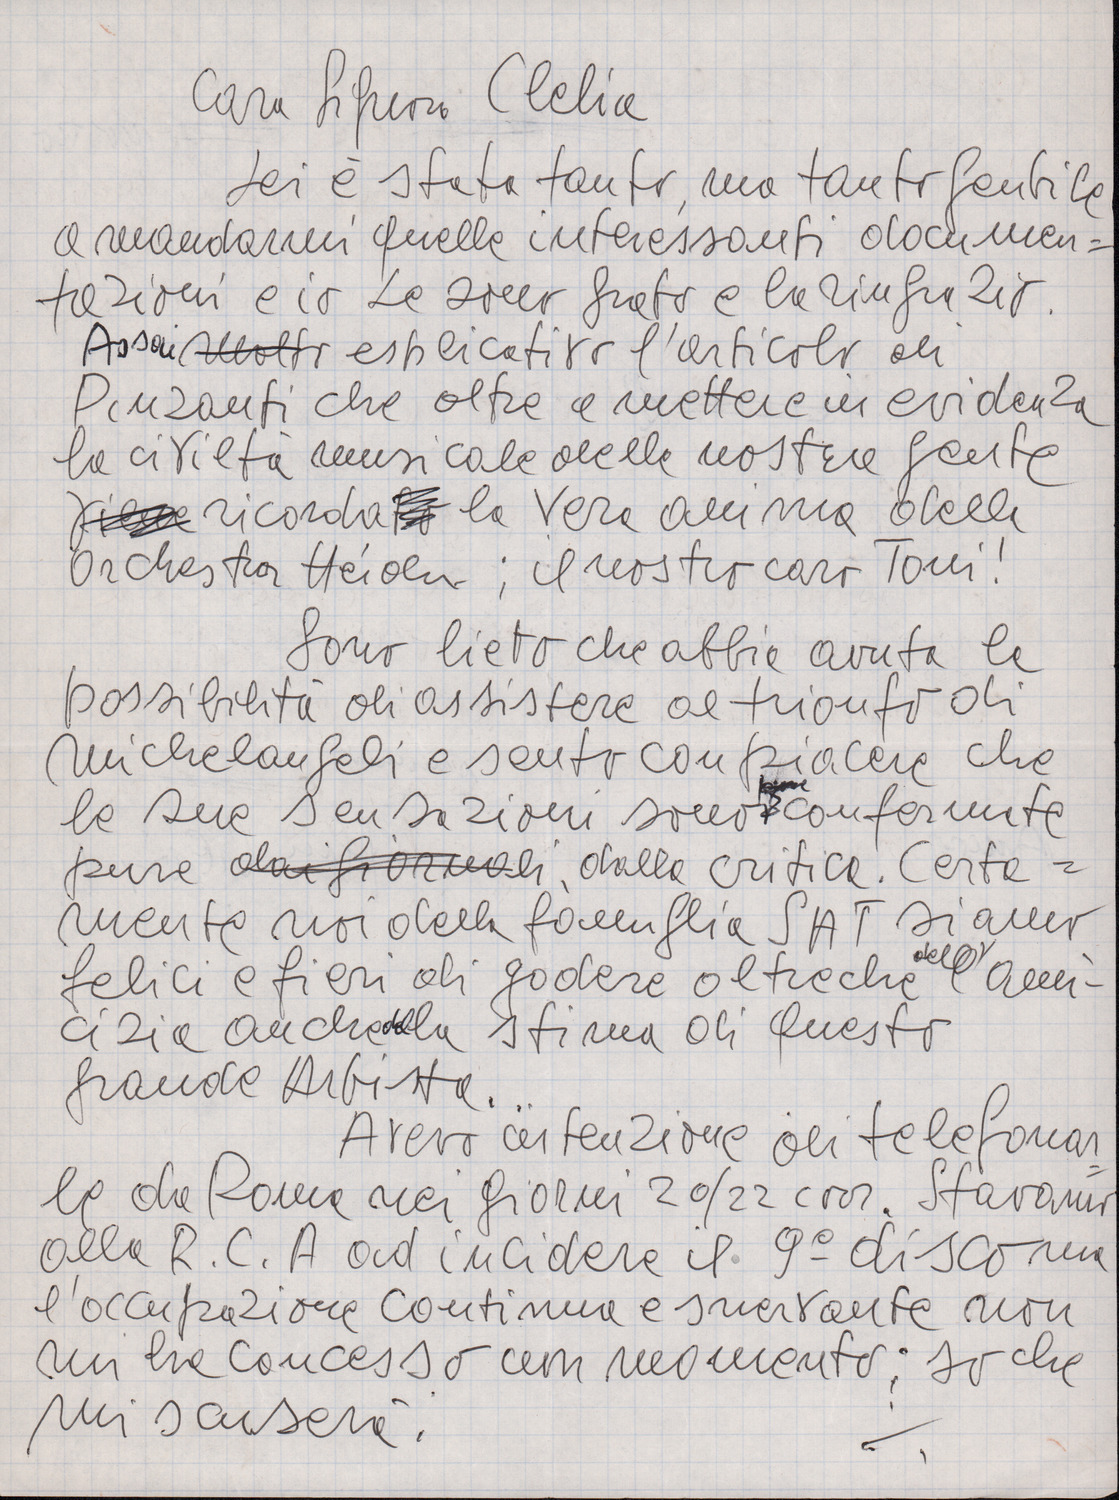 Cara Signora Clelia
Lei è stata tanto, ma tanto gentile
a mandarmi quelle interessanti documen=
tazioni e io Le sono grato e la ringrazio.
Assai molto esplicativo l'articolo di
Pinzauti che oltre a mettere in evidenza
la civiltà musicale della nostra gente
ricorda la vera anima della
Orchestra Haydn ; il nostro caro Toni!
Sono lieto che abbia avuta la
possibilità di assistere al trionfo di
Michelangeli e sento con piacere che
le sue sensazioni sono pure confermate
pure dai giornali, dalla critica. Certa=
mente noi della famiglia SAT siamo
felici e fieri di godere oltreche dell'ami-
cizia anche della stima di questo
grande Artista.
Avevo intenzione di telefonar=
le da Roma nei giorni 20/22 corr. Stavamo
alla R.C.A ad incidere il 9º disco ma
l'occupazione continua e snervante non
mi ha concesso un momento; so che
mi scuserà!